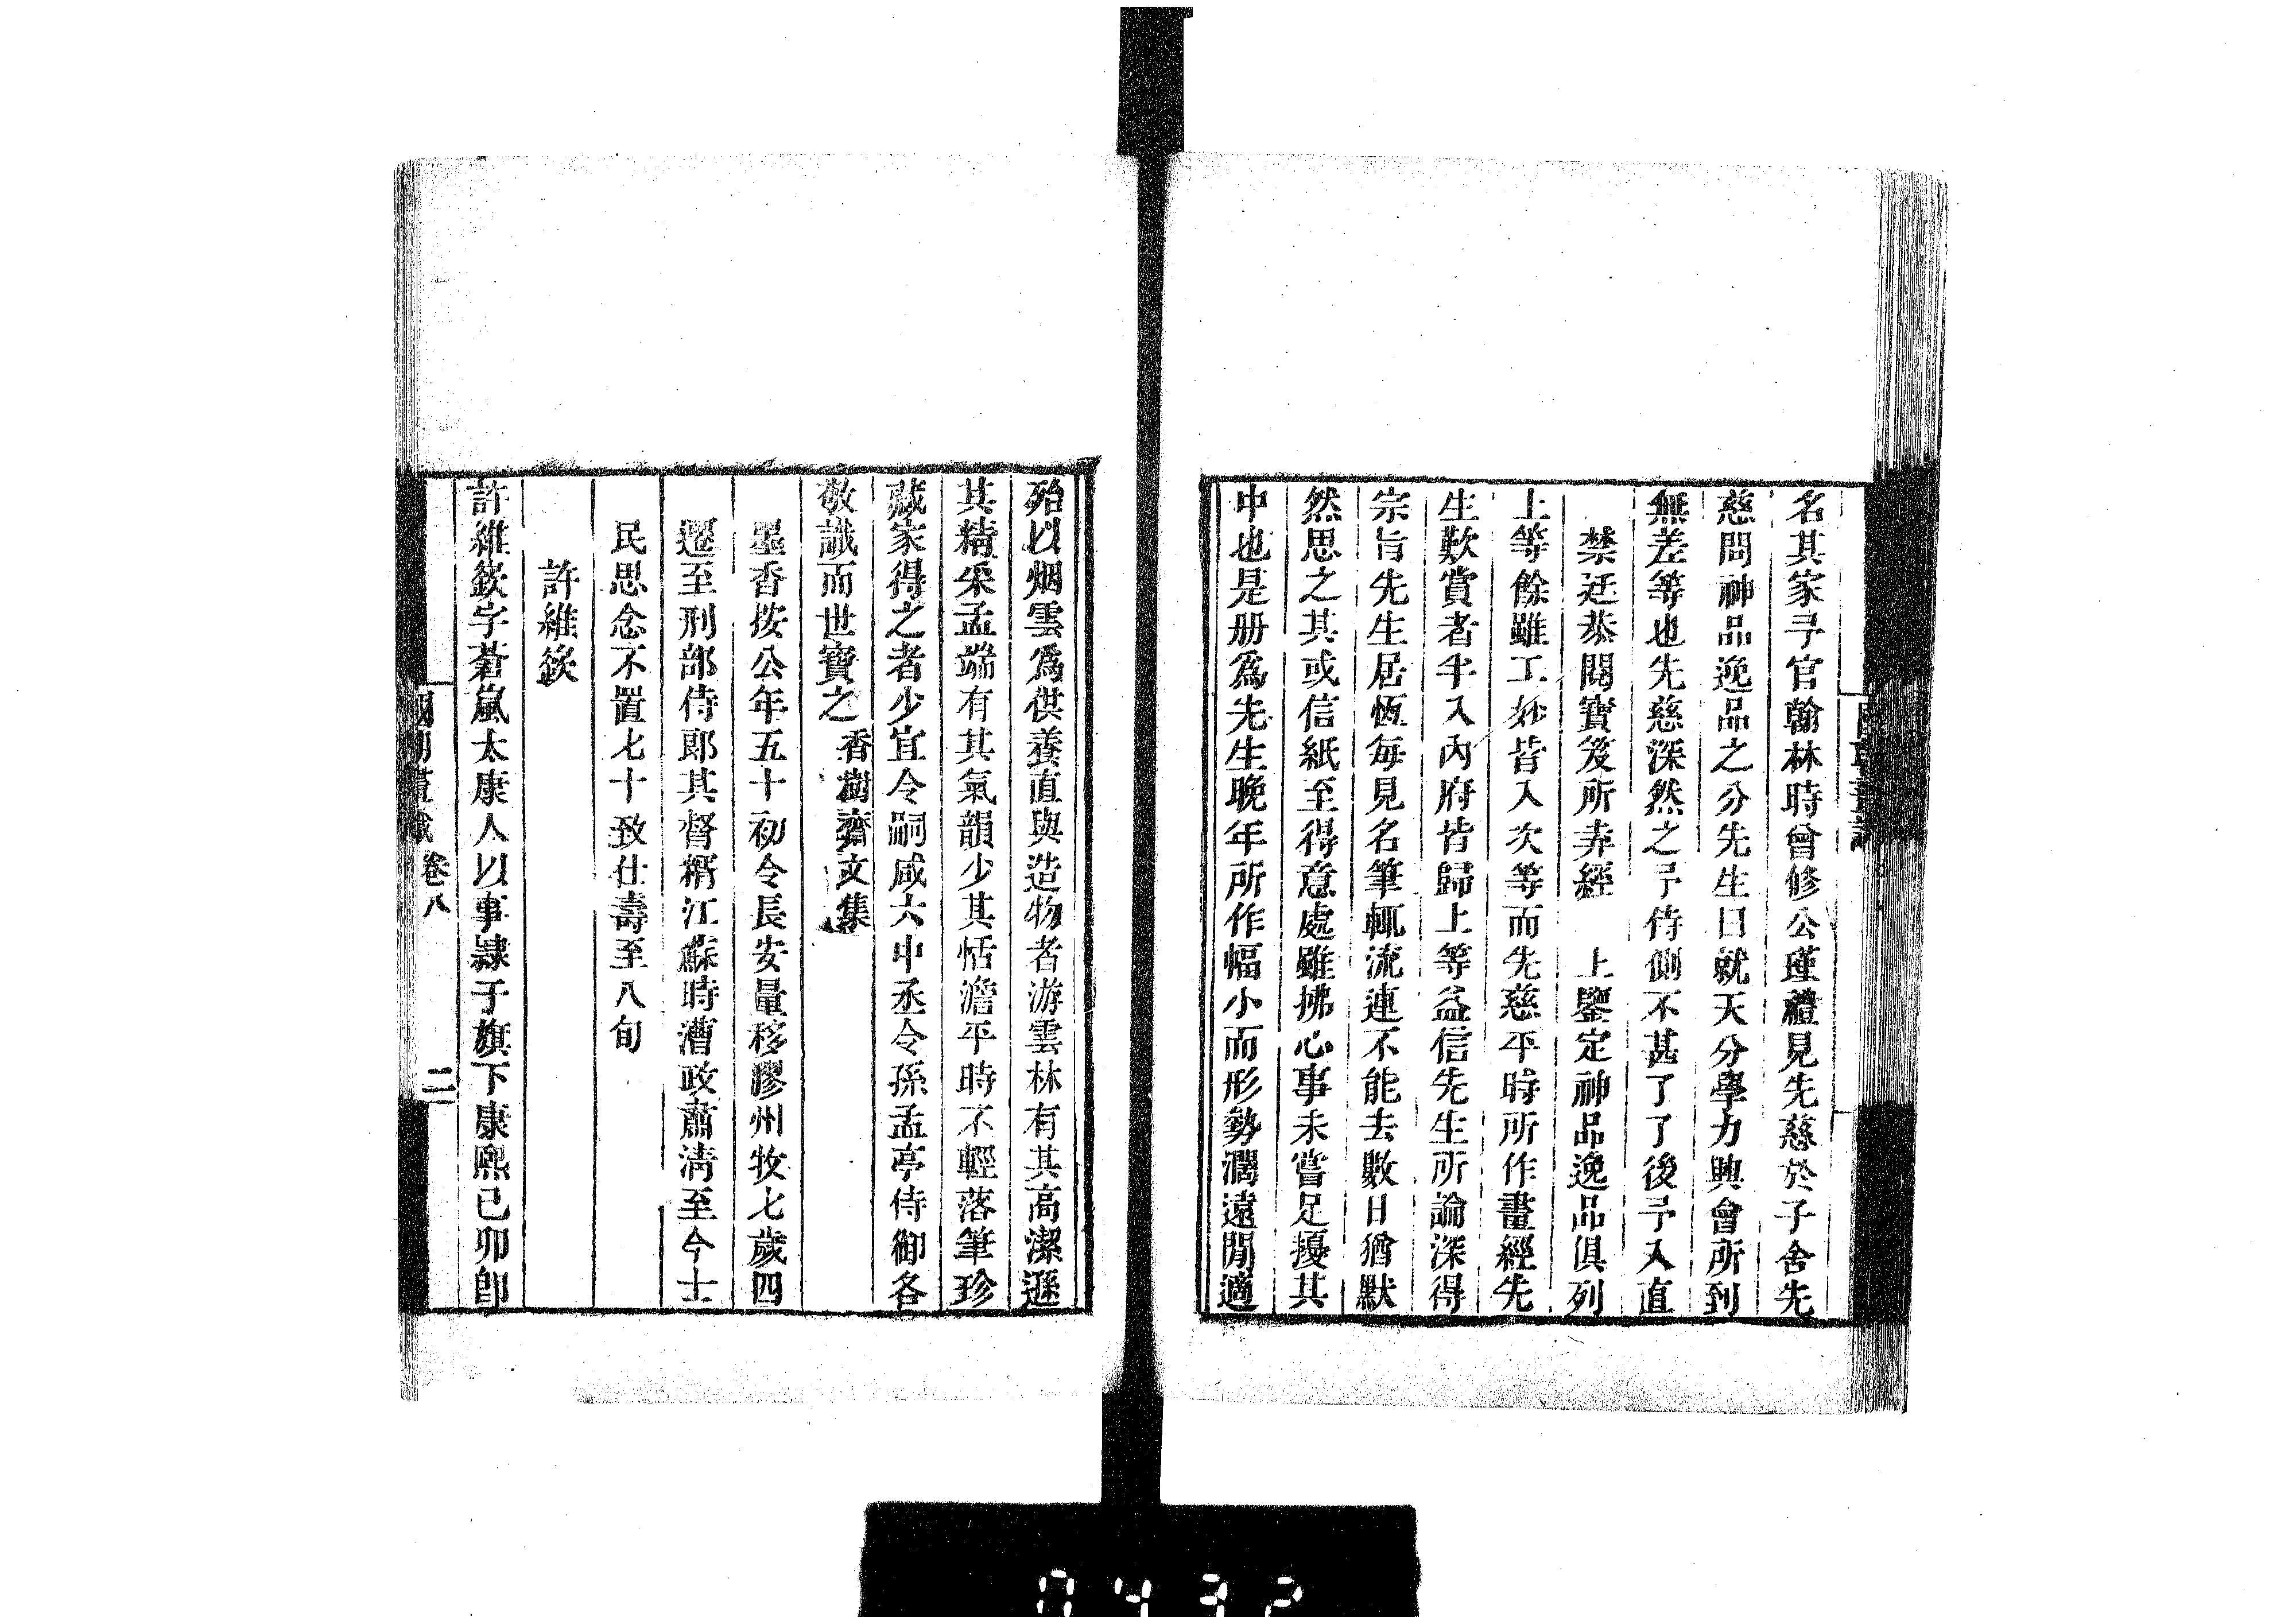 名其家予官翰林時曾修公瑾禮見先慈於子舍先
慈問神品逸品之分先生曰就天分學力興會所到
無差等也先慈深然之予侍側不甚了了後予入直
禁廷恭閱寶笈所弆經　上鑒定神品逸品俱列
上等餘雖工妙皆入次等而先慈平時所作畫經先
生歎賞者半入內府皆歸上等益信先生所論深得
宗旨先生居恆每見名筆輒流連不能去數日猶默
然思之其或信紙至得意處雖拂心事未嘗足擾其
中也是册爲先生晚年所作幅小而形勢濶遠閒適
殆以烟雲爲供養直與造物者游雲林有其高潔遜
其精采孟端有其氣韻少其恬澹平時不輕落筆珍
藏家得之者少宜令嗣咸六中丞令孫孟亭侍御各
敬識而世寶之 香樹齋文集
墨香按公年五十初令長安量移膠州牧七歲四
遷至刑部侍郎其督糈江蘇時漕政肅淸至今士
民思念不置七十致仕壽至八旬
許維嶔
許維嶔字蒼嵐太康人以事隷于旗下康熙己卯卽
國朝畫識 卷八 二